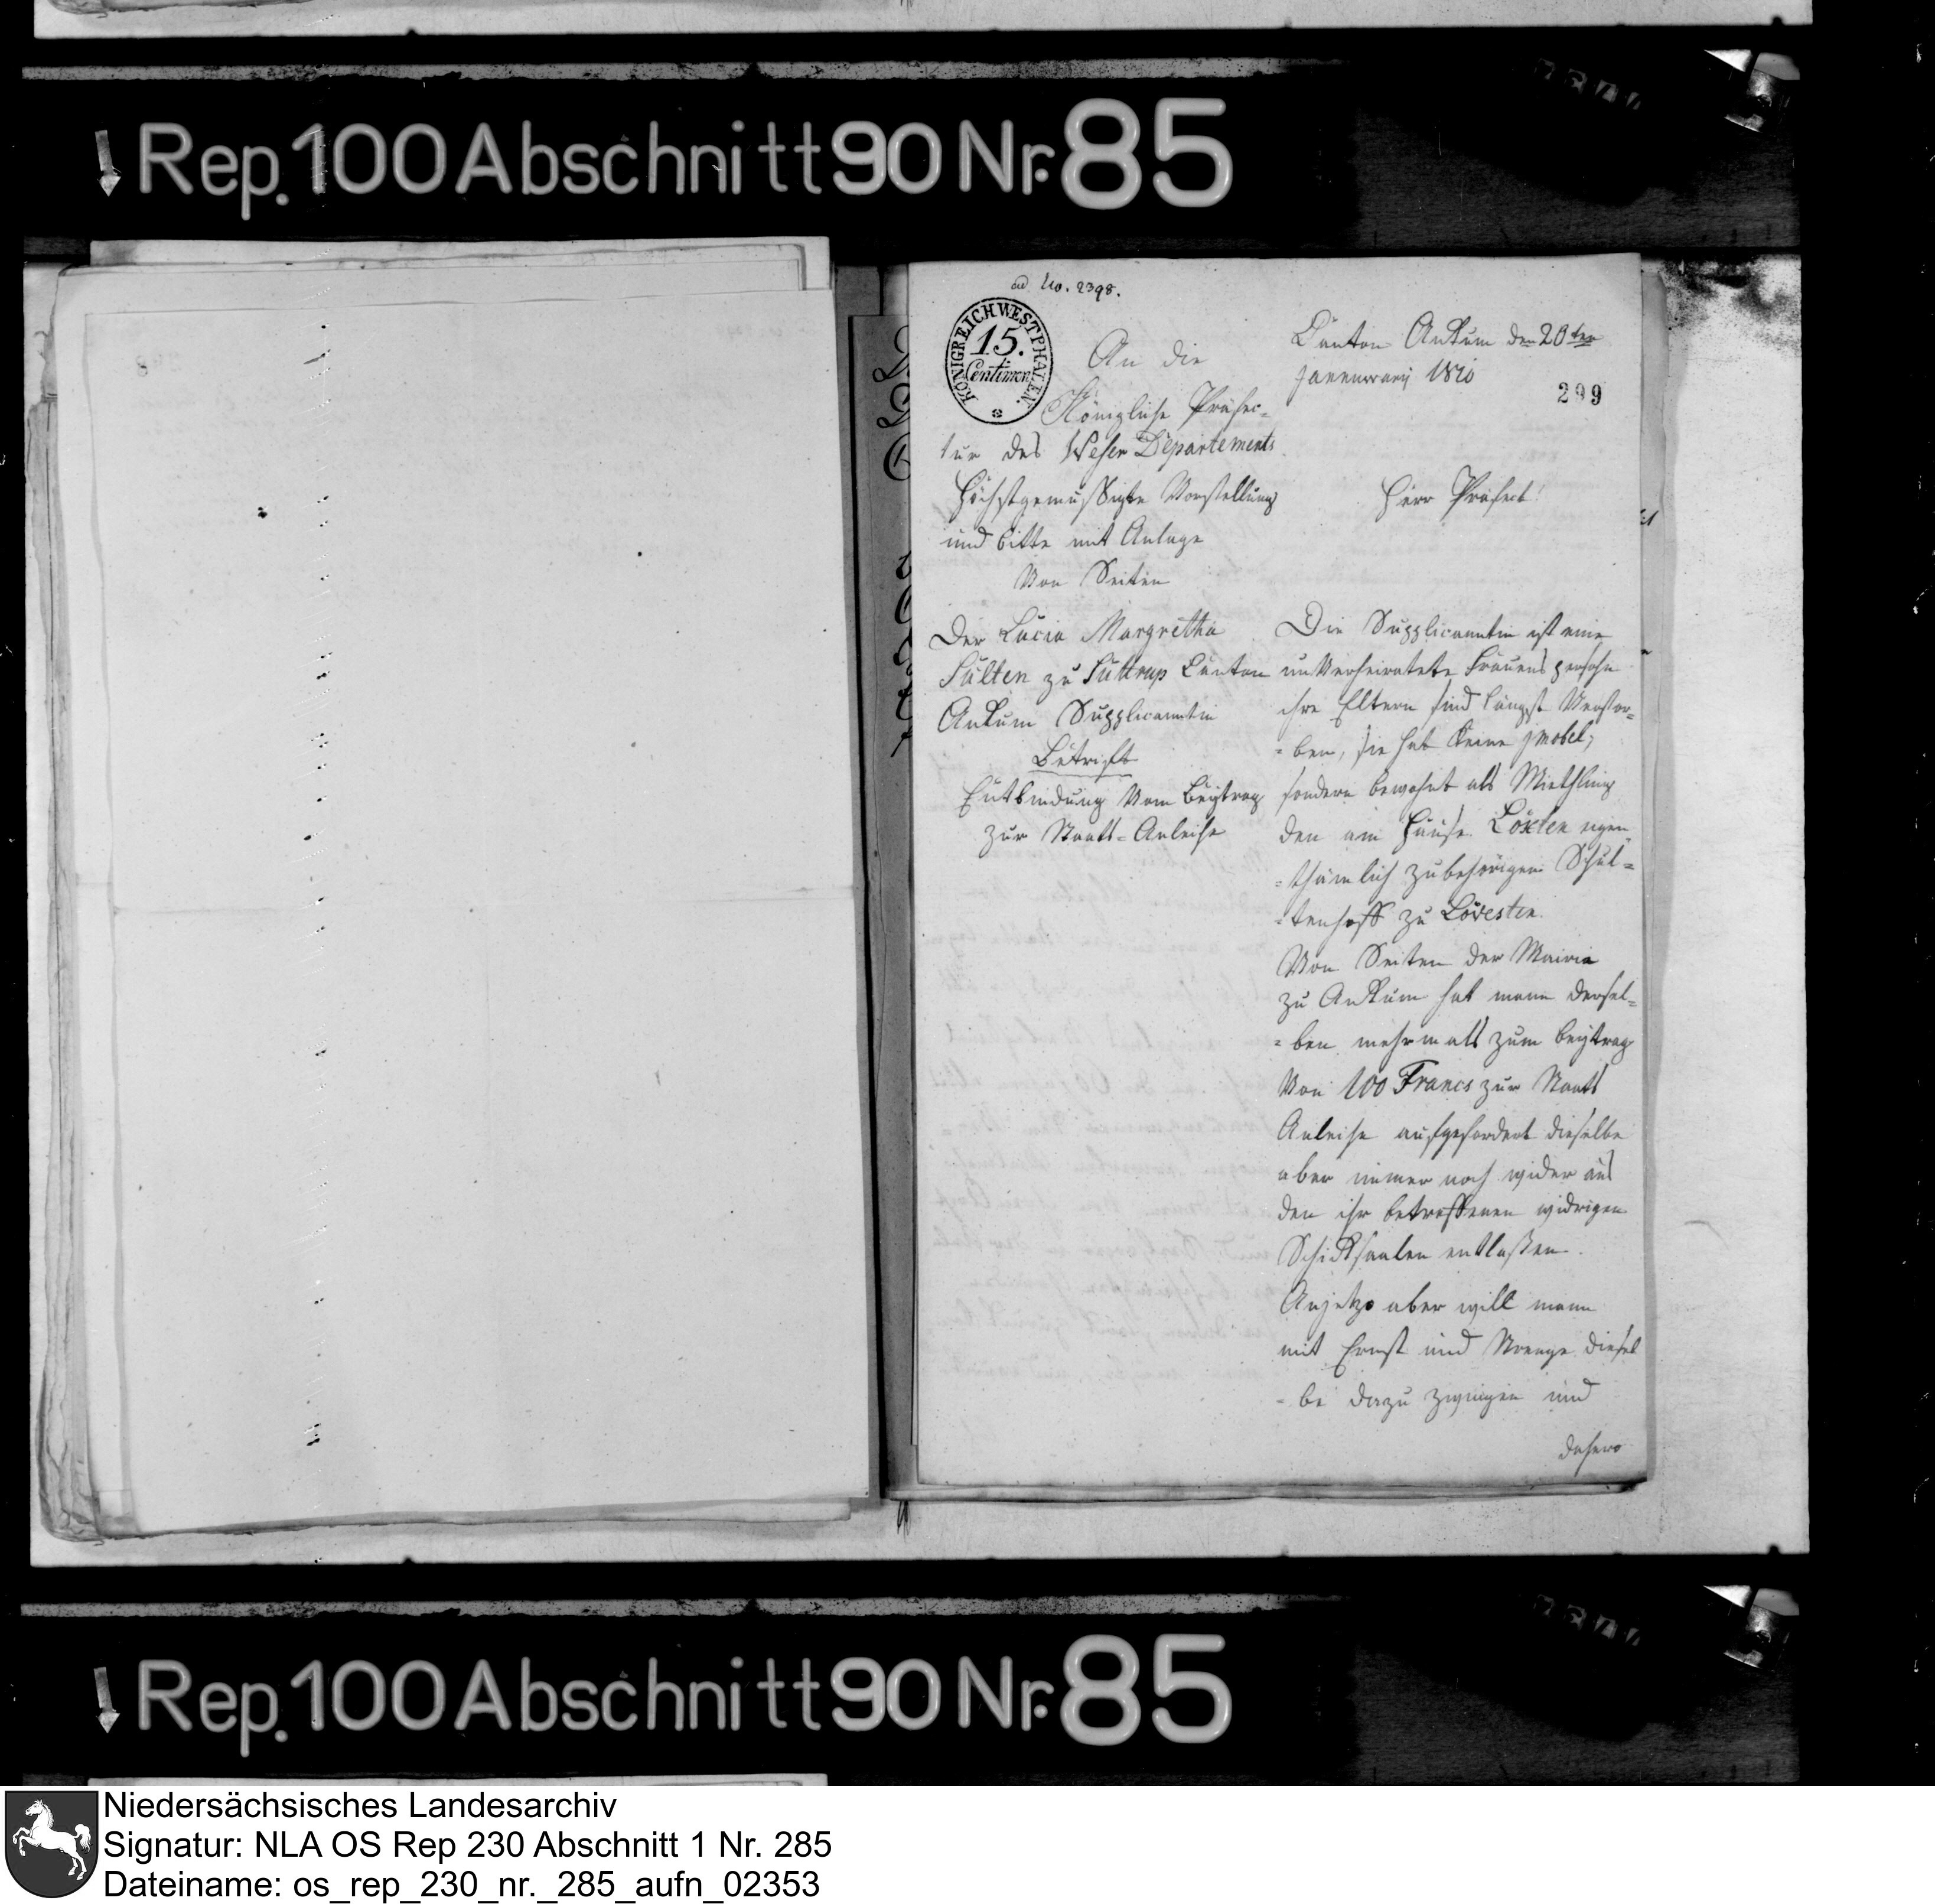 Rep. 100 Abschnitt 90 Nr. 85
ad No. 2398.
KÖNIGREICH WESTPHALEN.
15.
Centimen
Canton Ankum den 20ten
Januwarij 1810
299
An die
Königliche Präfec-
tur des Weser Departements
Höchstgemüssigte Vorstellung
und bitte mit Anlage
Von Seiten
Der Lucia Margretha
Sülten zu Suttrup Canton
Ankum Supplicantin
Betrift
Entbindung Vom Beÿtrag
zur Staats-Anleihe
Herr Präfect!
Die Supplicantin ist eine
unVerheiratete Frauens persohn
ihre Eltern sind längst Verstor-
-ben, sie hat keine jmobel;
sondern bewohnt als Miethling
den am Hause Loxten eigen
-thümlich zubehörigen Schul-
-tenhoff zu Lövesten.
Von Seiten der Mairie
zu Ankum hat mann dersel-
-ben mehrmals zum beÿtrag
Von 100 Francs zur Staats
Anleihe aufgefordert dieselbe
aber immer noch wider aus
den ihr betroffenen widrigen
Schicksaalen entlaßen.
Anjetzo aber will mann
mit Ernst und Strenge diesel
-be dazu zwingen und
dahero
Rep. 100 Abschnitt 90 Nr. 85
Niedersächsisches Landesarchiv
Signatur: NLA OS Rep 230 Abschnitt 1 Nr. 285
Dateiname: os_rep_230_nr._285_aufn_02353